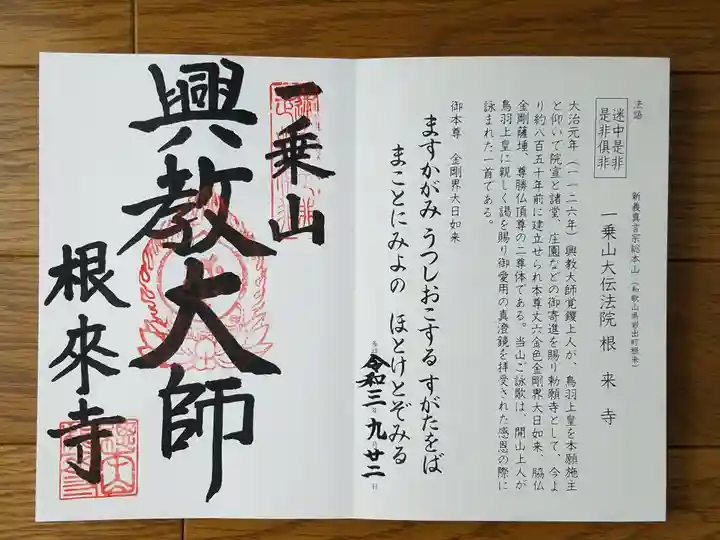 法語
迷中是非
是非俱非
新義真言宗総本山(和歌山県岩出町根来)
一乗山大伝法院根来寺
大治元年(一一二六年)興教大師覚鑁上人が、鳥羽上皇を本願施主
と仰いで院宣と諸堂、庄園などの御寄進を賜り勅願寺として、今よ
り約八百五十年前に建立せられ本尊丈六金色金剛界大日如来、脇仏
金剛薩埵、尊勝仏頂尊の二尊体である。当山ご詠歌は、開山上人が
鳥羽上皇に親しく謁を賜り御愛用の真澄鏡を拝受された感恩の際に
詠まれた一首である。
御本尊 金剛界大日如来
ますかがみ うつしおこする すがたをば
まことにみよの ほとけとぞみる
令和三年九月廿二日
一乗山
興教大師
根來寺